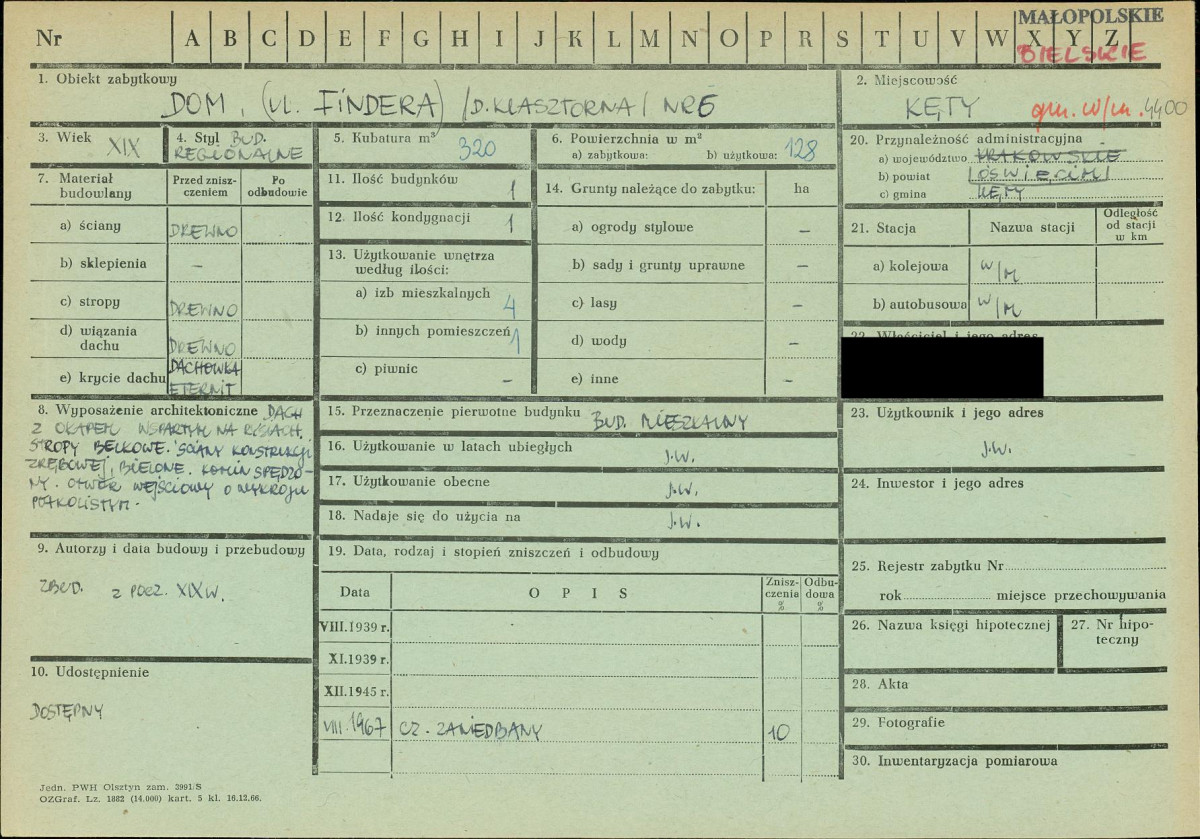 MAŁOPOLSKIE
Nr A B C D E F G H I J K L M N O P R S T U V W X Y Z
BIELSKIE
1. Obiekt zabytkowy
DOM, (ul. FINDERA) /D.KLASZTORNA/ NR 5
2. Miejscowość
KĘTY gm. w/m. 4400
3. Wiek XIX
4. Styl BUD.
REGIONALNE
5. Kubatura m³
320
6. Powierzchnia w m²
a) zabytkowa: b) użytkowa: 128
7. Materiał budowlany
Przed zniszczeniem
Po odbudowie
a) ściany DREWNO
b) sklepienia –
c) stropy DREWNO
d) wiązania dachu DREWNO
e) krycie dachu DACHÓWKA
ETERNIT
8. Wyposażenie architektoniczne DACH
Z OKAPEM WSPARTYM NA RYSIACH.
STROPY BELKOWE. ŚCIANY KONSTRUKCJI
ZRĘBOWEJ, BIELONE. KOMIN SPĘDZO-
NY. OTWÓR WEJŚCIOWY O WYKROJU
PÓŁKOLISTYM.
9. Autorzy i data budowy i przebudowy
ZBUD. Z POCZ. XIX W.
10. Udostępnienie
DOSTĘPNY
11. Ilość budynków 1
12. Ilość kondygnacji 1
13. Użytkowanie wnętrza
według ilości:
a) izb mieszkalnych 4
b) innych pomieszczeń 1
c) piwnic –
14. Grunty należące do zabytku: ha
a) ogrody stylowe –
b) sady i grunty uprawne –
c) lasy –
d) wody –
e) inne –
15. Przeznaczenie pierwotne budynku BUD. MIESZKALNY
16. Użytkowanie w latach ubiegłych J.W.
17. Użytkowanie obecne J.W.
18. Nadaje się do użycia na J.W.
19. Data, rodzaj i stopień zniszczeń i odbudowy
Data OPIS Zniszczenia % Odbudowa %
VIII.1939 r.
XI.1939 r.
XII.1945 r.
VIII.1967 CZ. ZANIEDBANY 10
20. Przynależność administracyjna
a) województwo KRAKOWSKIE
b) powiat /OŚWIĘCIM/
c) gmina KĘTY
21. Stacja Nazwa stacji Odległość od stacji w km
a) kolejowa W/M
b) autobusowa W/M
22. Właściciel i jego adres
23. Użytkownik i jego adres
J.W.
24. Inwestor i jego adres
25. Rejestr zabytku Nr
rok miejsce przechowywania
26. Nazwa księgi hipotecznej
27. Nr hipo-
teczny
28. Akta
29. Fotografie
30. Inwentaryzacja pomiarowa
Jedn. PWH Olsztyn zam. 3991/S
OZGraf. Lz. 1882 (14.000) kart. 5 kl. 16.12.66.